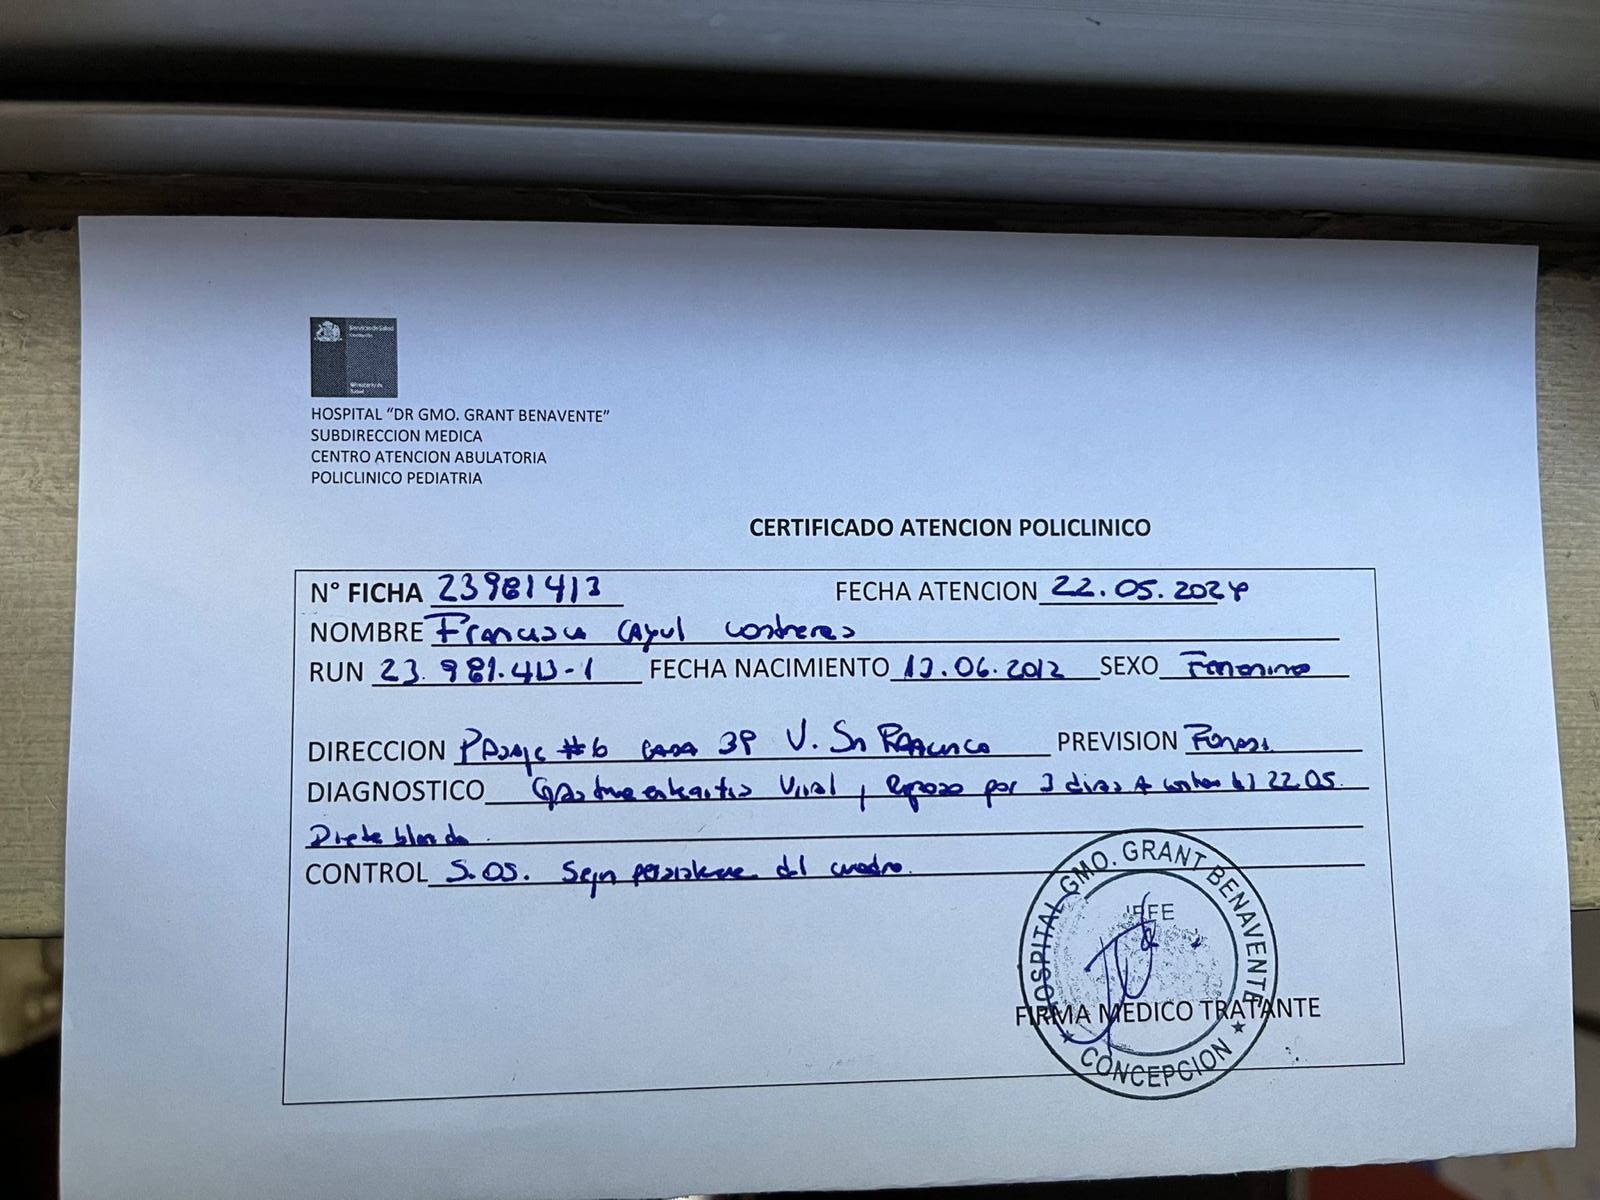 Servicio de Salud
Concepción
Ministerio de
Salud
HOSPITAL "DR GMO. GRANT BENAVENTE"
SUBDIRECCION MEDICA
CENTRO ATENCION ABULATORIA
POLICLINICO PEDIATRIA
CERTIFICADO ATENCION POLICLINICO
N° FICHA 23981413 FECHA ATENCION 22.05.2024
NOMBRE Francisca Cayul Contreras
RUN 23.981.413-1 FECHA NACIMIENTO 13.06.2012 SEXO Femenino
DIRECCION Pasaje #6 casa 39 V. Sn Francisco PREVISION Fonasa
DIAGNOSTICO Gastroenteritis Viral, Reposo por 3 dias A contar del 22.05.
Dieta blanda.
CONTROL S.OS. Segn persistencia del cuadro.
HOSPITAL GMO. GRANT BENAVENTE
JEFE
FIRMA MEDICO TRATANTE
★ CONCEPCION ★